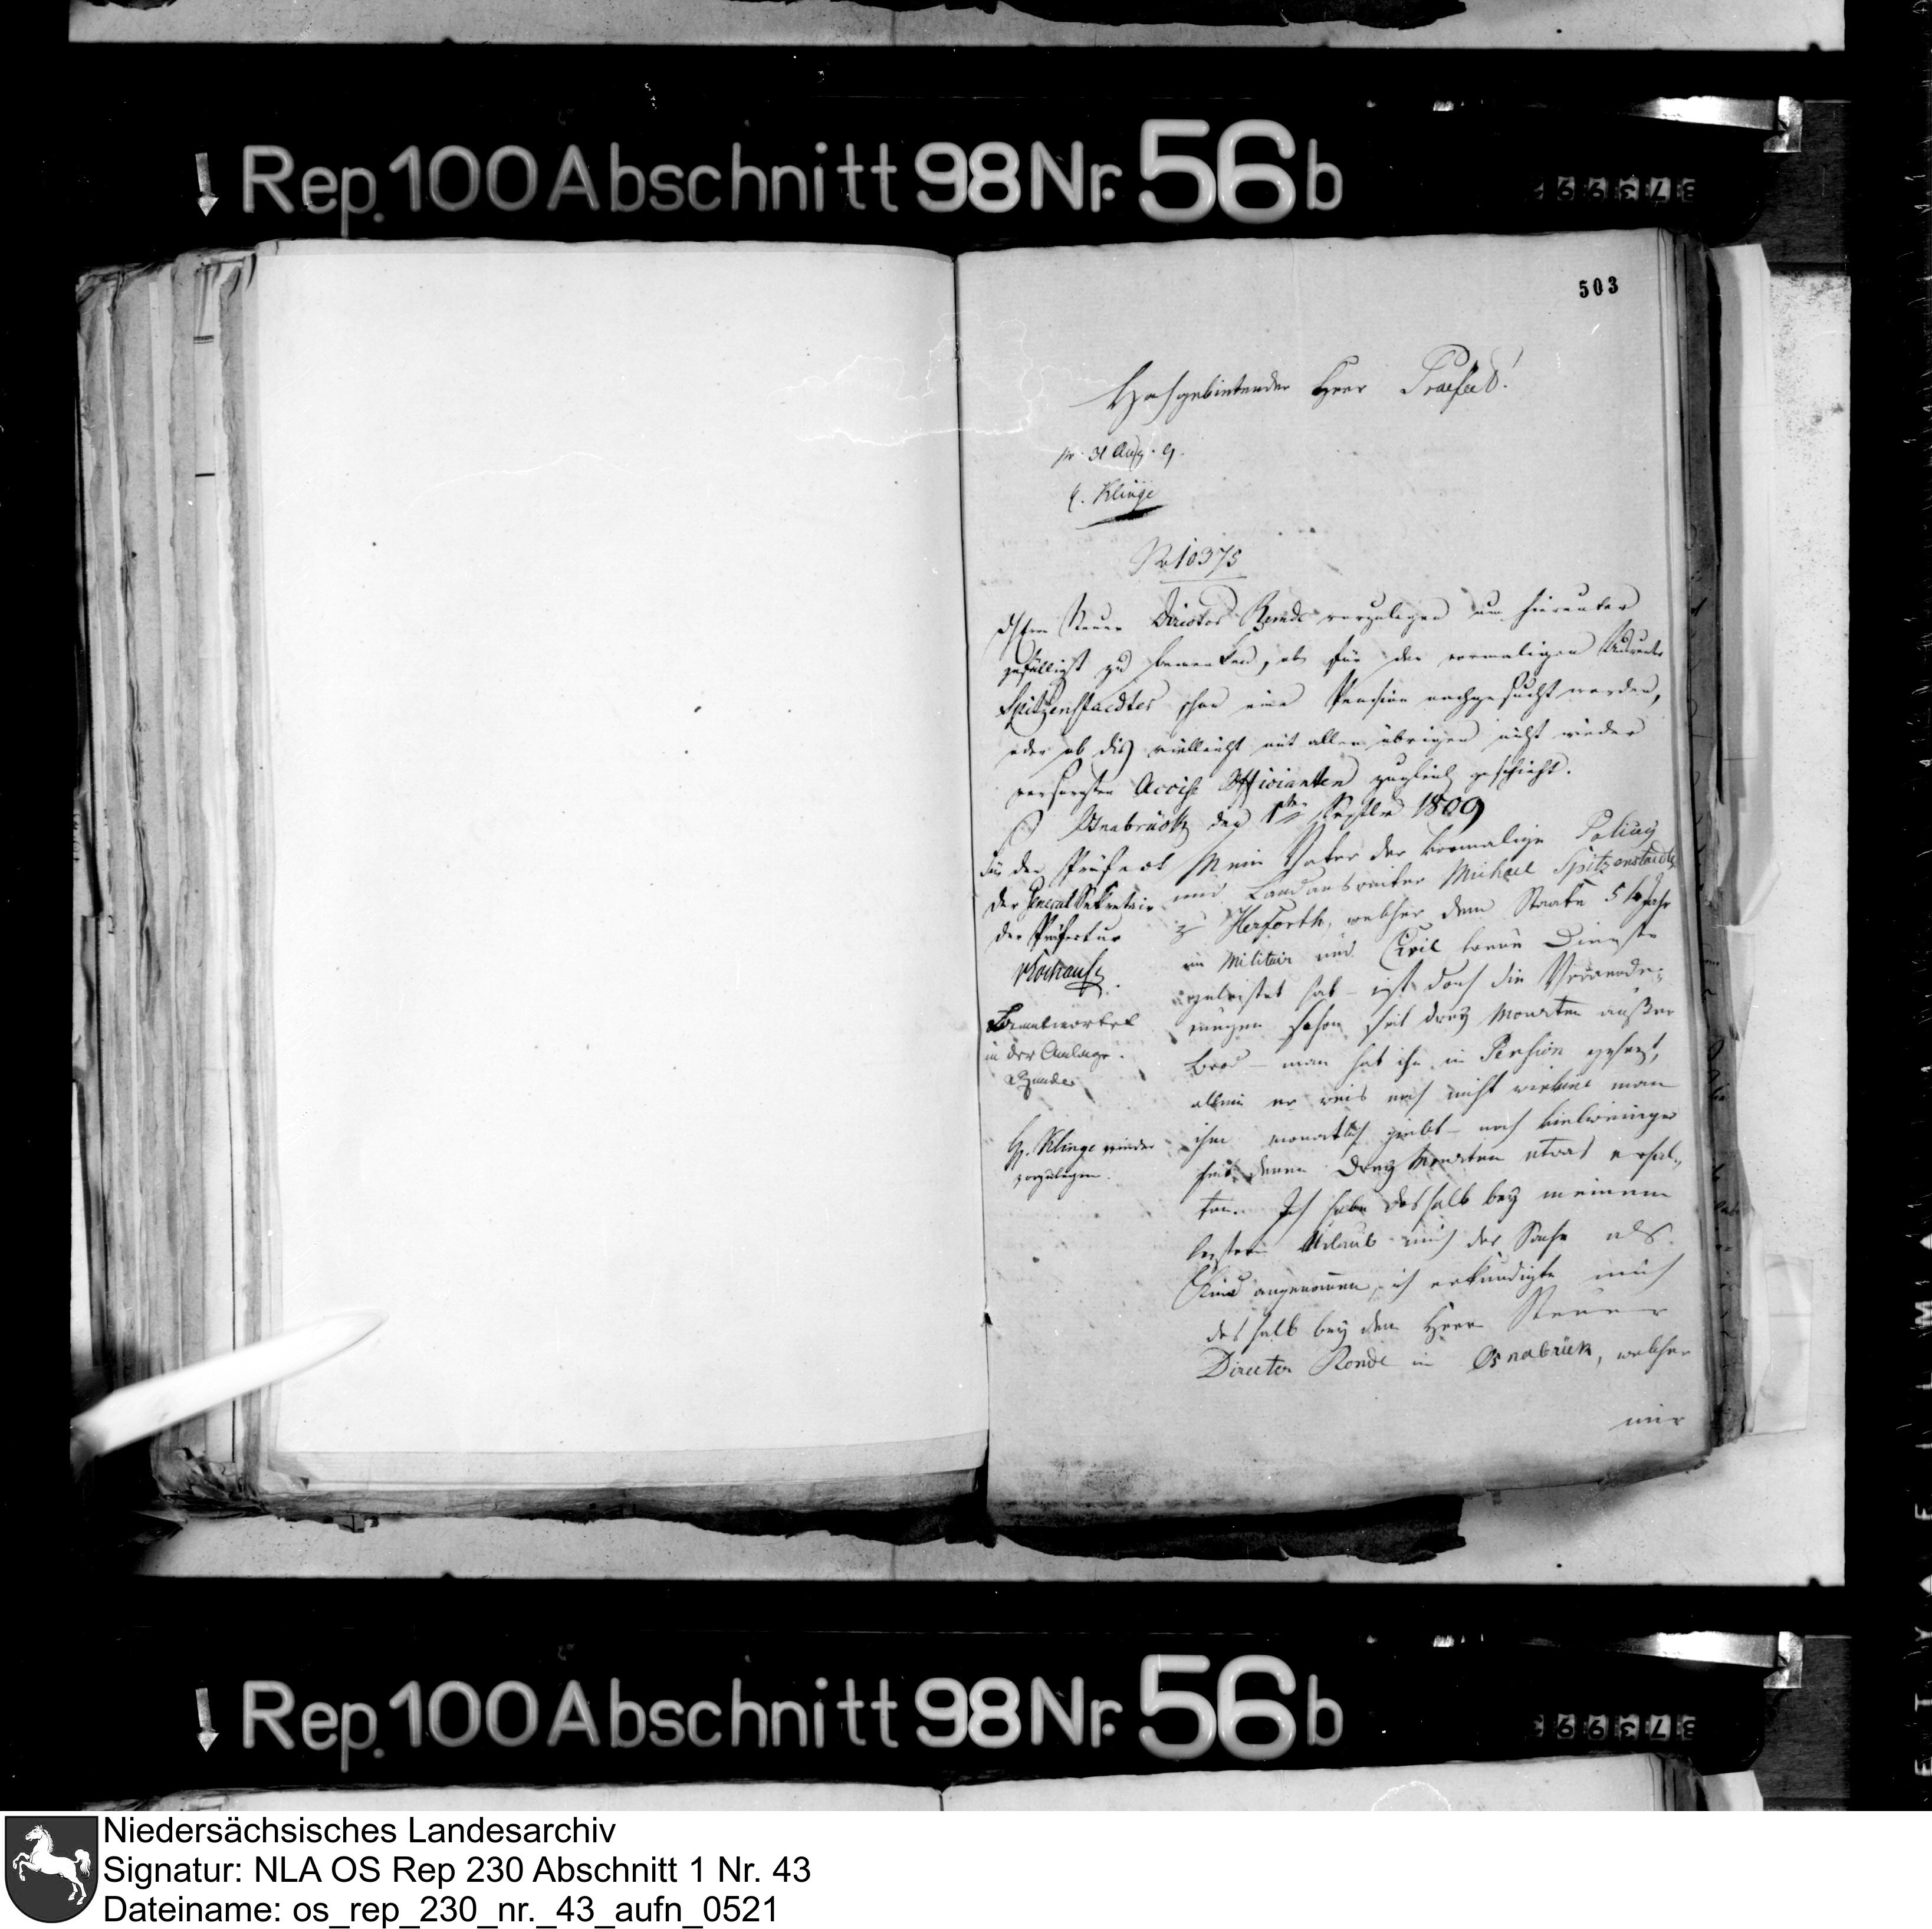 Rep. 100 Abschnitt 98 Nr. 56 b
503
Hochgebietender Herr Praefect!
pr. 31 Aug. 9.
Klinge
No 10375
Herrn Steuer Director Rende vorzulegen um hierunter
gefälligst zu bemerken, ob für den vormaligen
Spitzenstaedter schon eine Pension nachgesucht worden,
oder ob dies vielleicht mit allen übrigen nicht wieder
versorgten Accise Officianten zugleich geschieht.
Osnabrück den 1ten Septbr 1809
Für den Präfect
der General Sekretair
der Präfectur
in der Anlage.
H. Klinge wieder
vorzulegen.
Mein Vater der vormalige Policey
und Landausreiter Michael Spitzenstaedter
zu Herforth, welcher dem Staate Jahr
im Militair und Civil treue Dienste
geleistet hat – ist durch die Veraende-
rungen schon seit drey Monaten außer
Brod – man hat ihn in Pension gesezt,
allein er weis noch nicht wieviel man
ihm monatlich giebt – noch vielweniger
seit denen drey Monaten etwas erhal-
ten. Ich habe deshalb bey meinem
lezten Urlaub mich der Sache als
Kind angenommen, ich erkundigte mich
deshalb bey dem Herrn Steuer
Director Rende in Osnabrück, welcher
mir
Rep. 100 Abschnitt 98 Nr. 56 b
Niedersächsisches Landesarchiv
Signatur: NLA OS Rep 230 Abschnitt 1 Nr. 43
Dateiname: os_rep_230_nr._43_aufn_0521